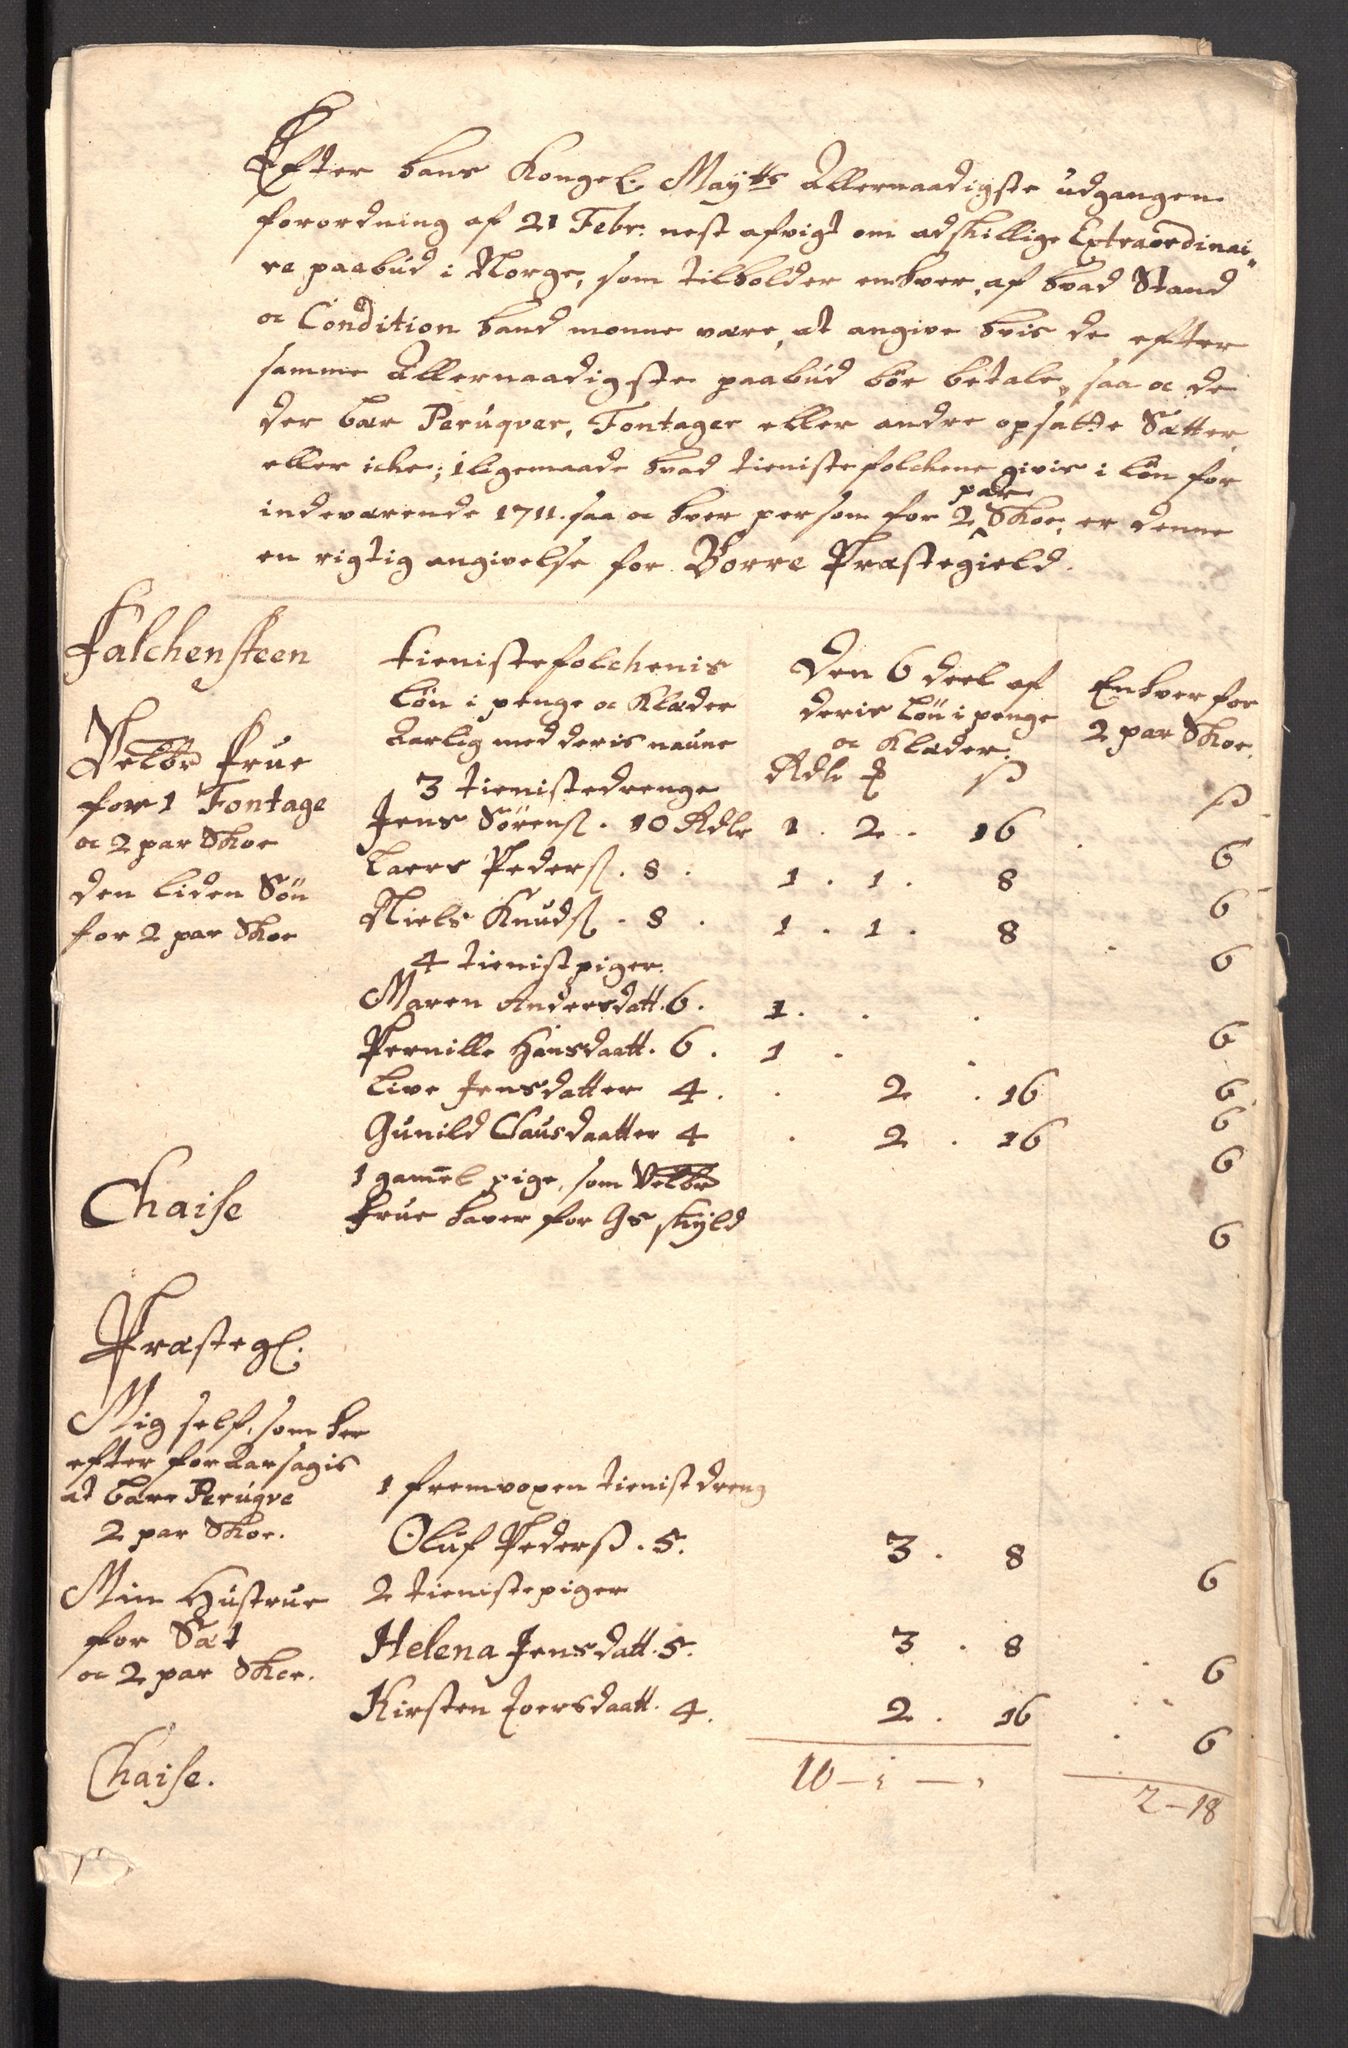 Efter hans Kongel. Maytts Allernaadigste udgangen
forordning af 21 Febr: nest afvigt om adskillige Extraordinai-
re paabud i Norge, som tilholder enhver, af hvad Stand
oc Condition hand monne være, at angive hvis de efter
samme Allernaadigste paabud bör betale, saa oc de
der bær Peruqver, Fontager eller andre opsatte Sætter
eller iche; iligemaade hvad tienistefolchene givis i lön for
par
indeværende 1711. saa oc hver person for 2 Skoe, er denne
en rigtig angivelse for Borre Præstegield.
Falchensteen
tienistefolchenis
lön i penge oc Klæder
Aarlig med deris naune
Den 6 deel af
deris lön i penge
oc Klæder.
Enhver for
2 par Skoe.
Velbr Frue
for 1 Fontage
oc 2 par Skoe
den liden Sön
for 2 par Skoe
3 tienistedrenge Rdlr ß ß
Jens Sörenß. 10 Rdlr 1. 2. 16 6
Laers Pederß. 8. 1. 1. 8 6
Niels Knudß. 8. 1. 1. 8 6
4 tienistpiger.
Maren Andersdatt. 6. 1. 6
Pernille Hansdaatt. 6. 1 6
Live Jensdatter 4. 2. 16 6
Gunild Clausdaatter 4 2. 16 6
Chaise
1 gamel pige, som Velbr
Frue haver for Gs skyld 6
Præstegl.
Mig self, som her
efter foraarsagis
at bære Peruqve
2 par Skoe.
1 fremvoxen tienistdreng
Oluf Pederß. 5. 3. 8 6
Min Hustrue
for Sæt
oc 2 par Skoe.
2 tienistepiger
Helena Jensdatt. 5. 3. 8 6
Kirsten Joersdaatt. 4. 2. 16 6
Chaise.
10 – 1 –
2 – 18